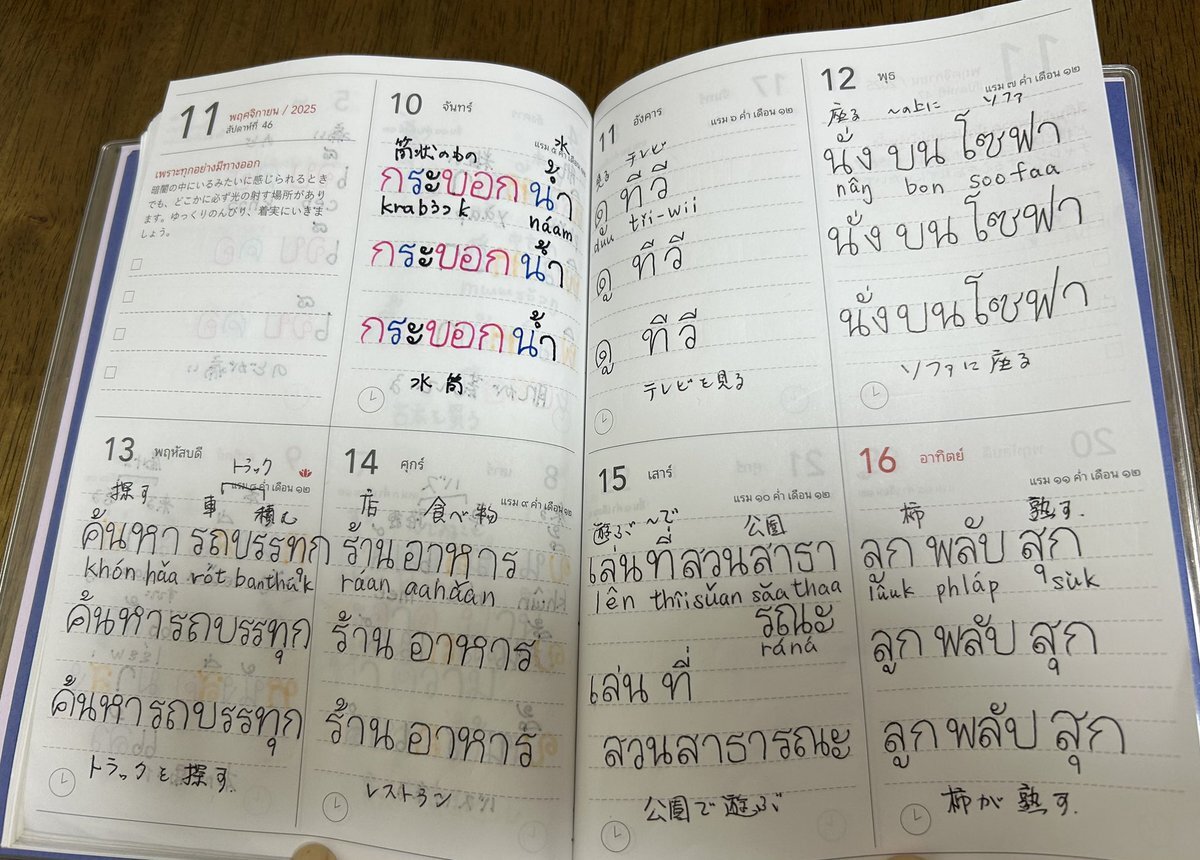 11 พฤศจิกายน / 2025
สัปดาห์ที่ 46
เพราะทุกอย่างมีทางออก
暗闇の中にいるみたいに感じられるとき
でも、どこかに必ず光の射す場所があり
ます。ゆっくりのんびり、着実にいきま
しょう。
10 จันทร์
筒状のもの 水
กระบอกน้ำ
krabɔ̀ɔk náam
กระบอกน้ำ
กระบอกน้ำ
水筒
11 อังคาร
แรม ๖ ค่ำ เดือน ๑๒
見る テレビ
ดู ทีวี
duu thii-wii
ดู ทีวี
ดู ทีวี
テレビを見る
12 พุธ
แรม ๗ ค่ำ เดือน ๑๒
座る ~の上に ソファ
นั่ง บน โซฟา
nâŋ bon soofaa
นั่ง บน โซฟา
นั่ง บน โซฟา
ソファに座る
13 พฤหัสบดี
แรม ๘ ค่ำ เดือน ๑๒
トラック
探す 車 積む
ค้นหา รถบรรทุก
khón hǎa rót banthúk
ค้นหา รถบรรทุก
ค้นหา รถบรรทุก
トラックを探す.
14 ศุกร์
แรม ๙ ค่ำ เดือน ๑๒
店 食べ物
ร้าน อาหาร
ráan aahǎan
ร้าน อาหาร
ร้าน อาหาร
レストラン
15 เสาร์
แรม ๑๐ ค่ำ เดือน ๑๒
遊ぶ ~で 公園
เล่น ที่ สวนสาธา
lên thîi sǔan sǎathaa
รณะ
ráná
เล่น ที่
สวนสาธารณะ
公園で遊ぶ
16 อาทิตย์
แรม ๑๑ ค่ำ เดือน ๑๒
柿 熟す.
ลูก พลับ สุก
lûuk phláp sùk
ลูก พลับ สุก
ลูก พลับ สุก
柿が熟す